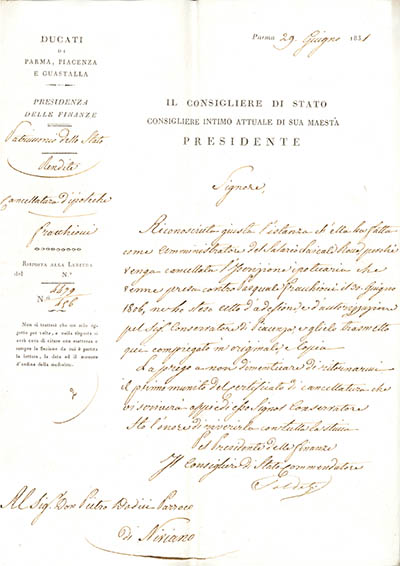 DUCATI
DI
PARMA, PIACENZA
E GUASTALLA
PRESIDENZA
DELLE FINANZE
Patrimonio dello Stato
Rendite
Cancellatura d'ipoteche
Fracchioni
RISPOSTA ALLA LETTERA
del N.º
N.º 4479
456
Non si trattesi che un solo oggetto per volta, e nella risposta si avrà cura di citare con esattezza sempre la Sezione da cui è partita la lettera, la data ed il numero d'ordine della medesima.
Parma 29. Giugno 1831
IL CONSIGLIERE DI STATO
CONSIGLIERE INTIMO ATTUALE DI SUA MAESTÀ
PRESIDENTE
Signore,
Riconosciuta giusta l'istanza ch'ella ha fatta
come amministratore del perchè
venga cancellata l'iscrizione ipotecaria che
venne presa contro Pasquale Fracchioni il 30. Giugno
1806, ne ho steso atto d'adesione e d'autorizzazione
pel Sig.r Conservatore di Piacenza, e glielo trasmetto
qui compiegato in originale, e copia
La prego a non dimenticare di ritornarmi
il primo munito del certificato di cancellatura che
vi scriverà appiedi esso Signor Conservatore
Ho l'onore di riverirla con tutta la stima
Pel Presidente delle finanze
Il Consigliere di Stato commendatore
Al Sig.r Don Pietro Parroco
di Niviano